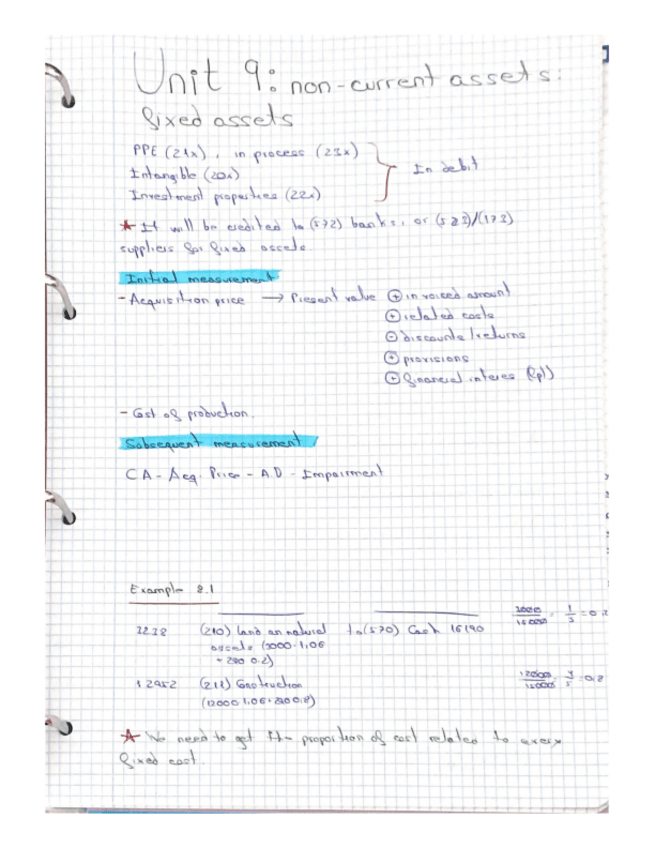 Unit 9: non-current assets:
fixed assets
PPE (21x), in process (23x)
Intangible (20x)
Investment properties (22x)
In debit
★ It will be credited to (572) banks, or (523)/(173)
suppliers for fixed assets.
Initial measurement
- Acquisition price → Present value ⊕ invoiced amount
⊕ related costs
⊖ discounts/returns
⊕ provisions
⊕ financial interes
- Cost of production.
Subsequent measurement
CA - Acq. Price - A.D - Impairment
Example 2.1
3000/15000 = 1/5 = 0,2
2238 (210) land an natural to (570) Cash 16190
assets (3000·1,06
+ 290 0.2)
12952 (211) Construction
12000/15000 = 4/5 = 0,8
(12000 1.06 + 290 0,8)
★ We need to get the proportion of cost related to every
fixed cost.